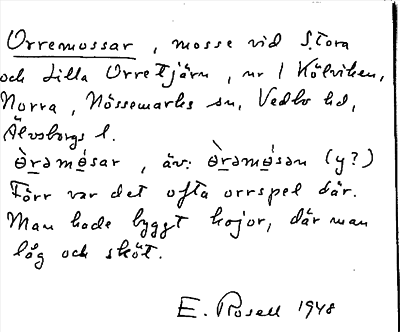 Orremossar, mosse vid Stora
och Lilla Orretjärn, nr 1 Kölviken,
Norra, Nössemarks sn, Vedbo hd,
Älvsborgs l.
Förr var det ofta orrspel där.
Man hade byggt kojor, där man
låg och sköt.
E. Rosell 1948